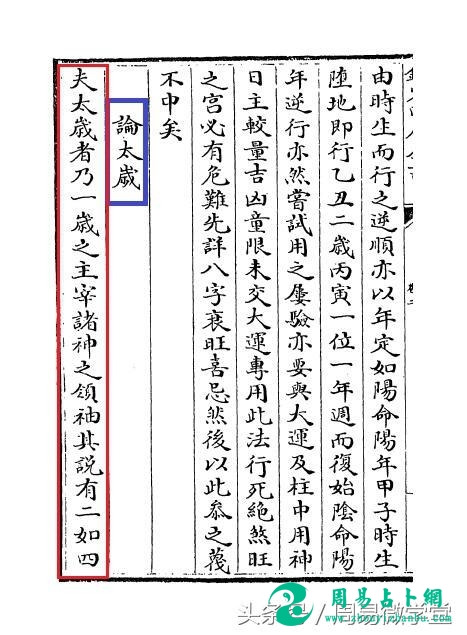 由時生而行之逆順亦以年定如陽命陽年甲子時生
墮地即行乙丑二歲丙寅一位一年週而復始陰命陽
年逆行亦然嘗試用之屢驗亦要與大運及柱中用神
日主較量吉凶童限未交大運專用此法行死絕煞旺
之宮必有危難先詳八字衰旺喜忌然後以此叅之蔑
不中矣
論太歲
夫太歲者乃一歲之主宰諸神之領袖其說有二如四
周易占卜網
头条号/周易微学堂